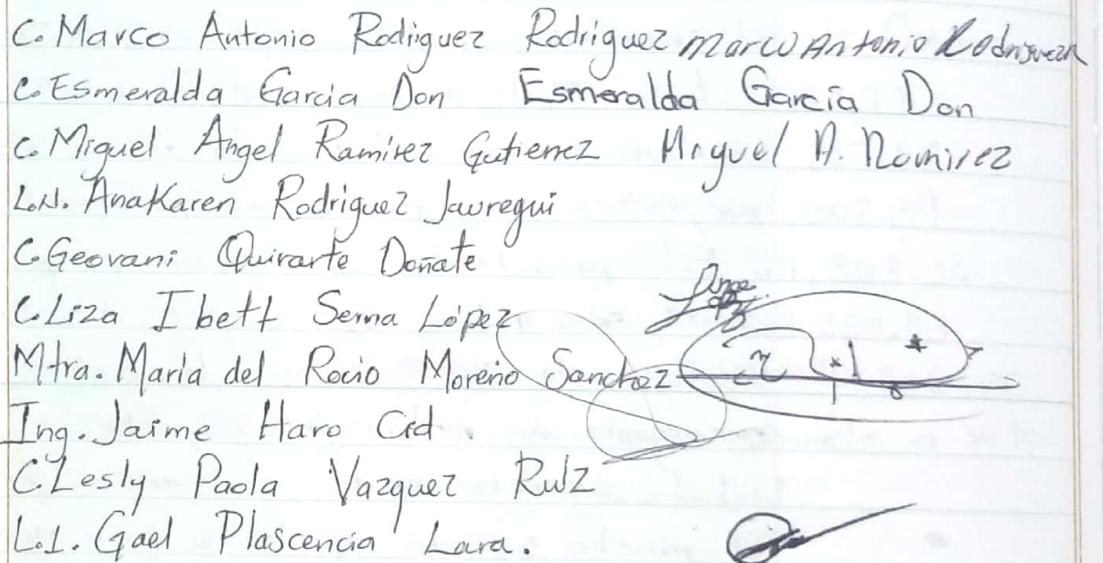 C. Marco Antonio Rodriguez Rodriguez Marco Antonio Rodriguez
C. Esmeralda Garcia Don Esmeralda García Don
C. Miguel Angel Ramirez Gutierrez Miguel A. Ramirez
L.N. AnaKaren Rodriguez Jauregui
C. Geovani Quirarte Doñate
C. Liza Ibett Serna López
Mtra. María del Rocio Moreno Sanchez
Ing. Jaime Haro Cid.
C. Lesly Paola Vazquez Ruiz
L.I. Gael Plascencia Lara.